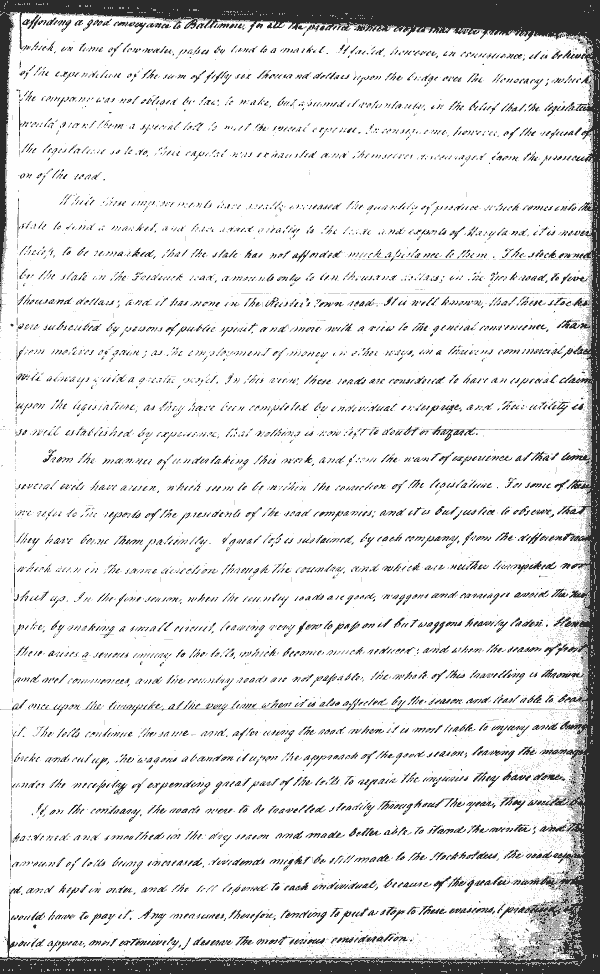 affording a good conveyance to Baltimore, for all the produce which
which, in time of low water, passes by land to a market. It failed, however, in consequence, it is believed
of the expenditure of the sum of fifty six thousand dollars upon the bridge over the Monocacy; which
the company was not obliged by law, to make, but assumed it voluntarily, in the belief that the legislature
would grant them a special toll to meet the special expense. In consequence, however, of the refusal of
the legislature so to do, their capital was exhausted and themselves discouraged from the prosecuti
on of the road.
While these improvements have greatly increased the quantity of produce which comes into the
state to find a market, and have added greatly to the trade and exports of Maryland, it is never
theless, to be remarked, that the state has not afforded much assistance to them. The stock owned
by the state in the Frederick road, amounts only to ten thousand dollars; in the York road, to five
thousand dollars; and it has none in the Reister's Town road. It is well known, that these stocks
were subscribed by persons of public spirit, and more with a view to the general convenience, than
from motives of gain; as the employment of money in other ways, in a thriving commercial place
will always yield a greater profit. In this view, these roads are considered to have an especial claim
upon the legislature, as they have been completed by individual enterprize, and their utility is
so well established by experience, that nothing is now left to doubt or hazard.
From the manner of undertaking this work, and from the want of experience at that time
several evils have arisen, which seem to be within the correction of the legislature. For some of these
we refer to the reports of the presidents of the road companies; and it is but justice to observe, that
they have borne them patiently. A great loss is sustained, by each company, from the different roads
which run in the same direction through the country, and which are neither turnpiked nor
shut up. In the fine season, when the country roads are good, waggons and carriages avoid the turn
pike, by making a small circuit, leaving very few to pass on it but waggons heavily laden. Hence
there arises a serious injury to the tolls, which become much reduced; and when the season of frost
and wet commences, and the country roads are not passable, the whole of this travelling is thrown
at once upon the turnpike, at the very time when it is also affected by the season and least able to bear
it. The tolls continue the same – and, after using the road when it is most liable to injury and being
broke and cut up, the wagons abandon it upon the approach of the good season; leaving the managers
under the necessity of expending great part of the tolls to repair the injuries they have done.
If, on the contrary, the roads were to be travelled steadily throughout the year, they would be
hardened and smoothed in the dry season and made better able to stand the winter; and the
amount of tolls being increased, dividends might be still made to the stockholders, the road
ed, and kept in order, and the toll lessened to each individual, because of the greater number
would have to pay it. Any measures, therefore, tending to put a stop to these evasions, (practised, as
would appear, most extensively,) deserve the most serious consideration.